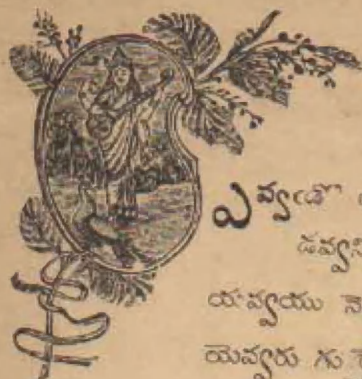 ఎవ్వఁడొ
డవ్వసి
యవ్వయు నె
యెవ్వరు గు